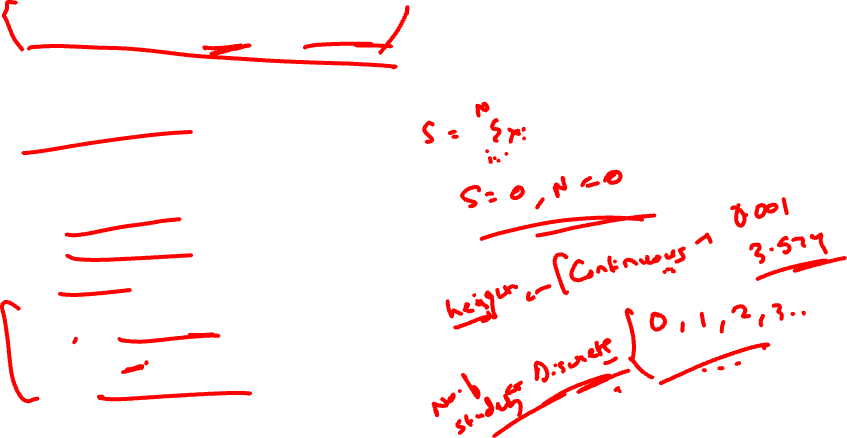 S = N Σ xi
i..
S = 0, N = 0
height ← Continuous → 0.001
3.574
No. of students ← Discrete { 0, 1, 2, 3..